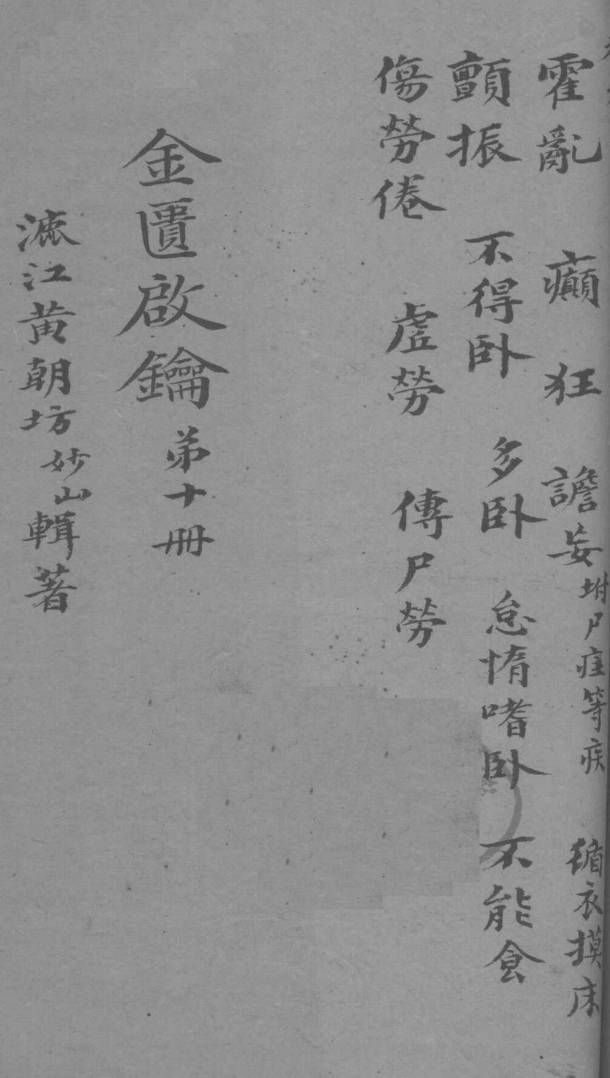 霍亂 癲狂 譫妄 坿尸疰等疾 循衣摸床
顫振 不得卧 多卧 怠惰嗜卧 不能食
傷勞倦 虛勞 傳尸勞
金匱啟鑰 弟十冊
漉江黃朝坊妙山輯著